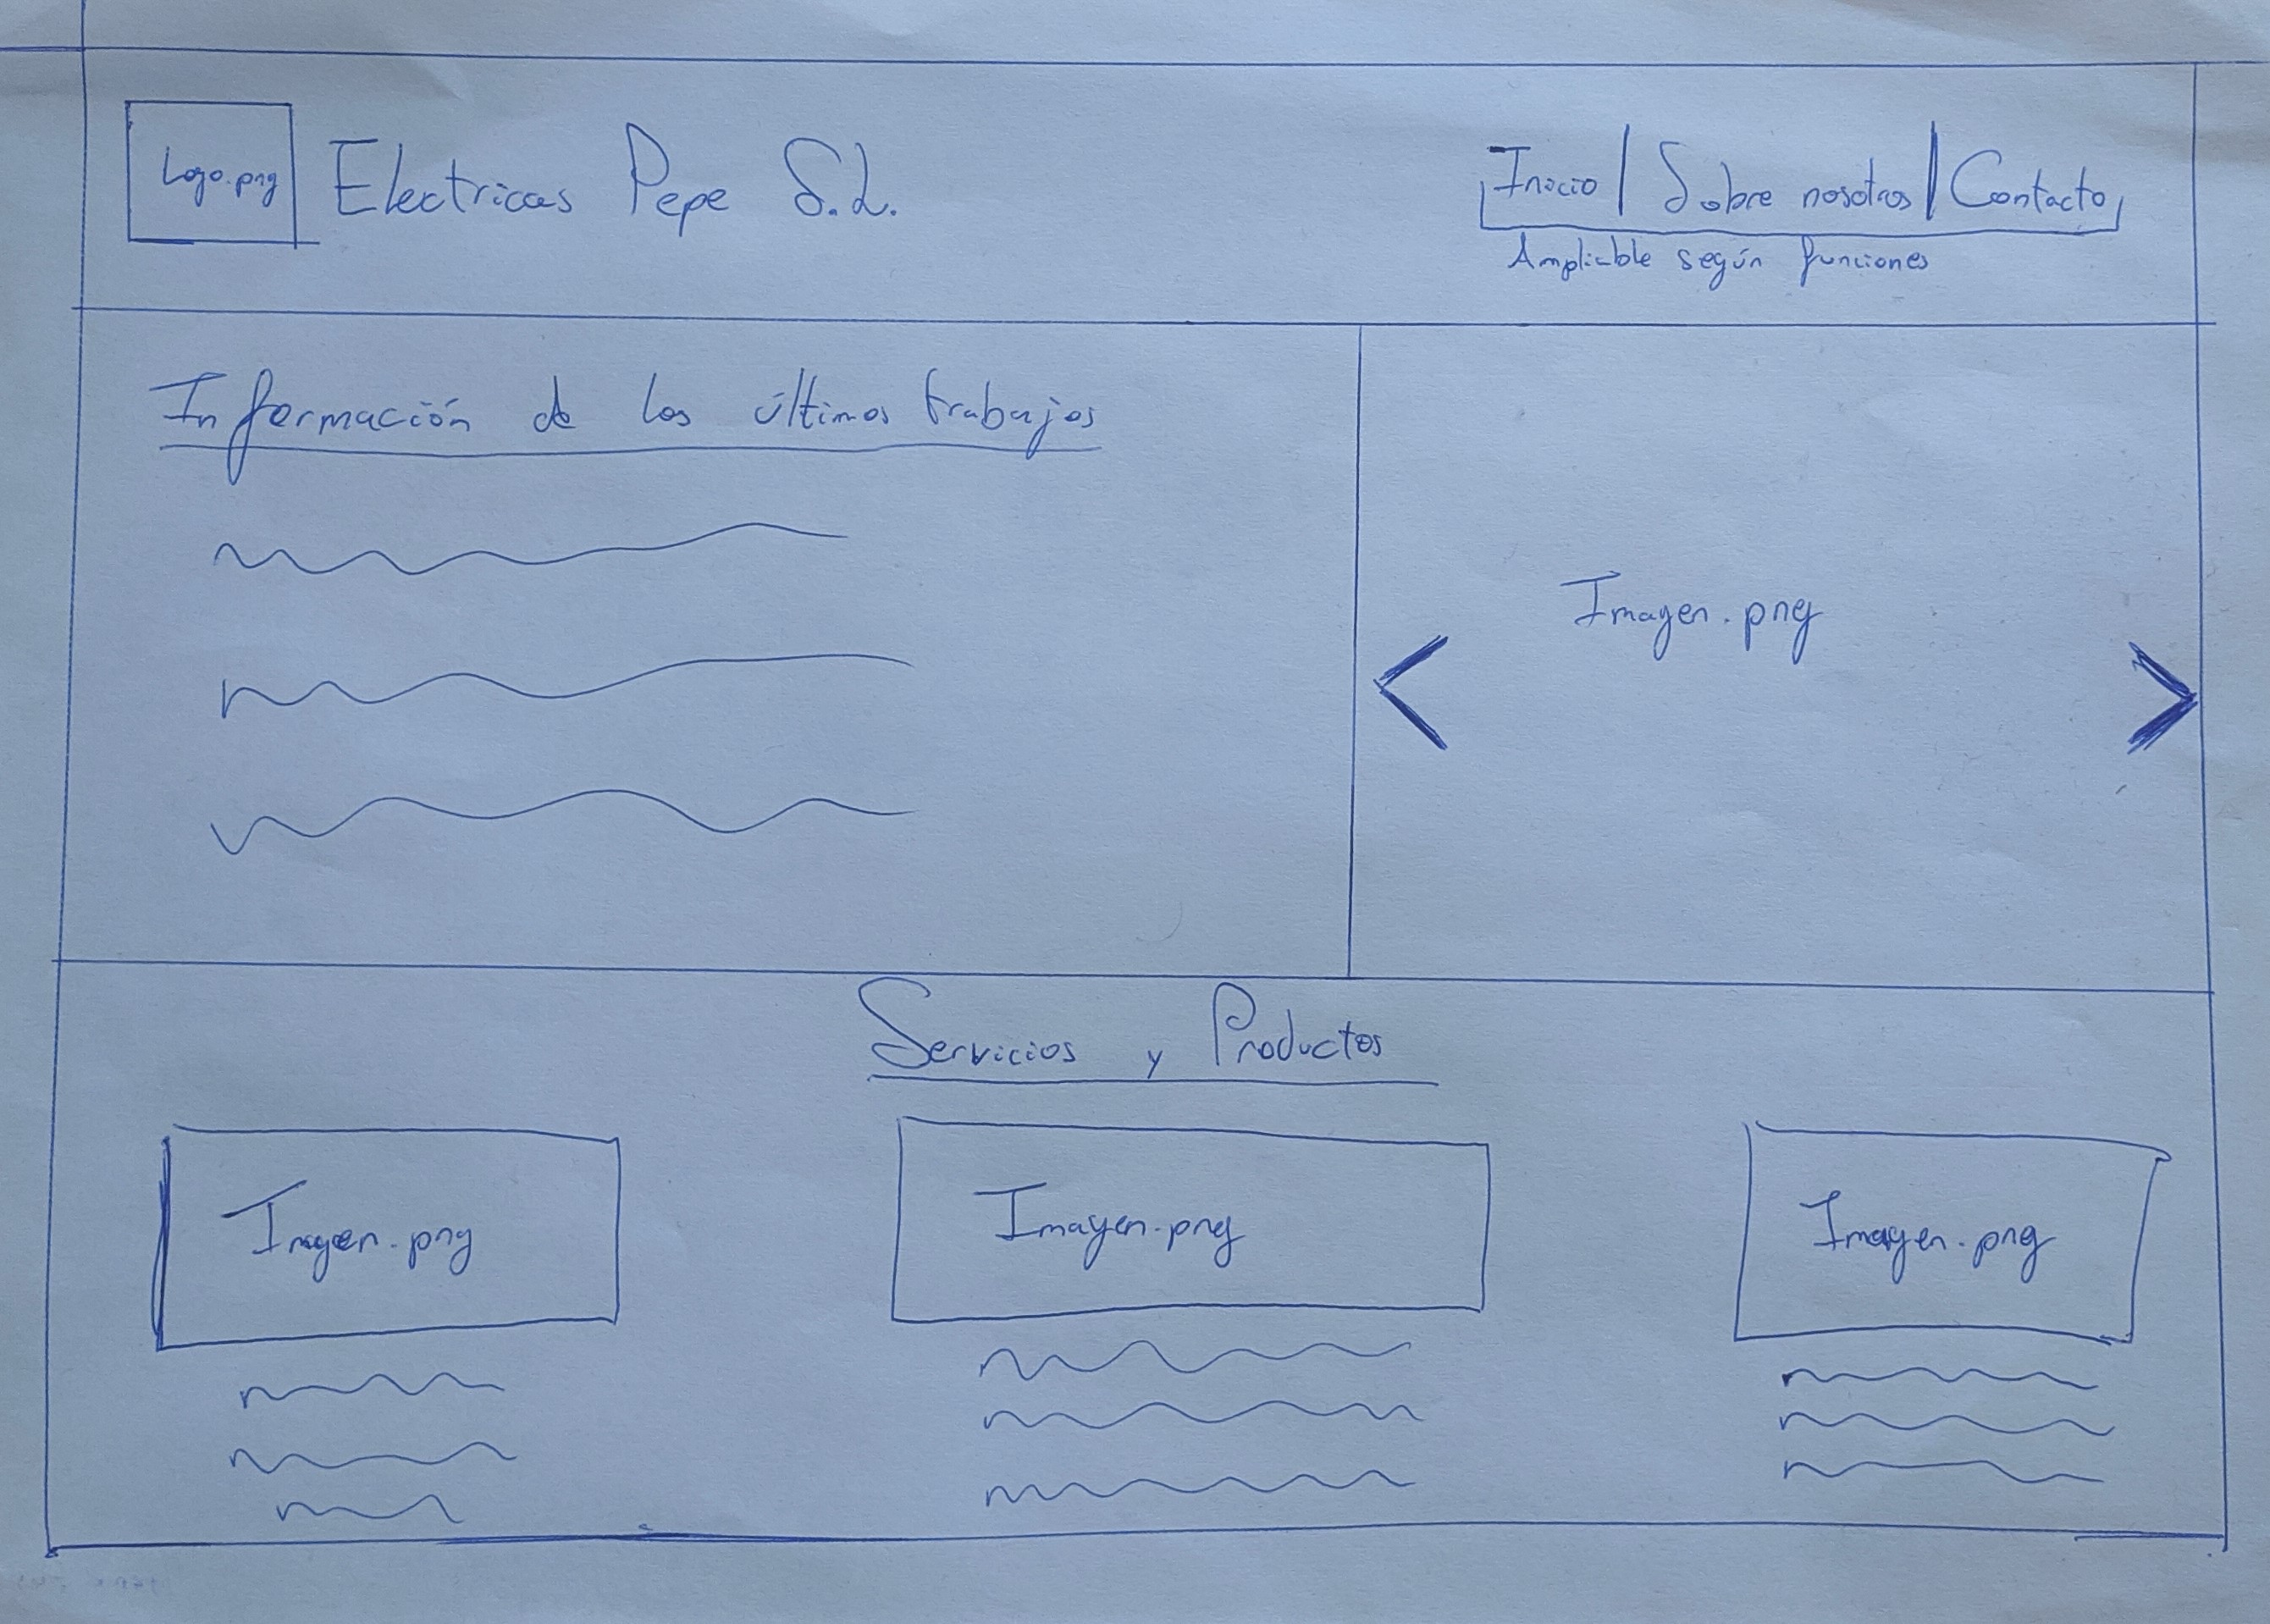 Logo.png
Electricas Pepe S.L.
Inicio | Sobre nosotros | Contacto
Ampliable según funciones
Información de los últimos trabajos
Imagen.png
<
>
Servicios y Productos
Imagen.png
Imagen.png
Imagen.png